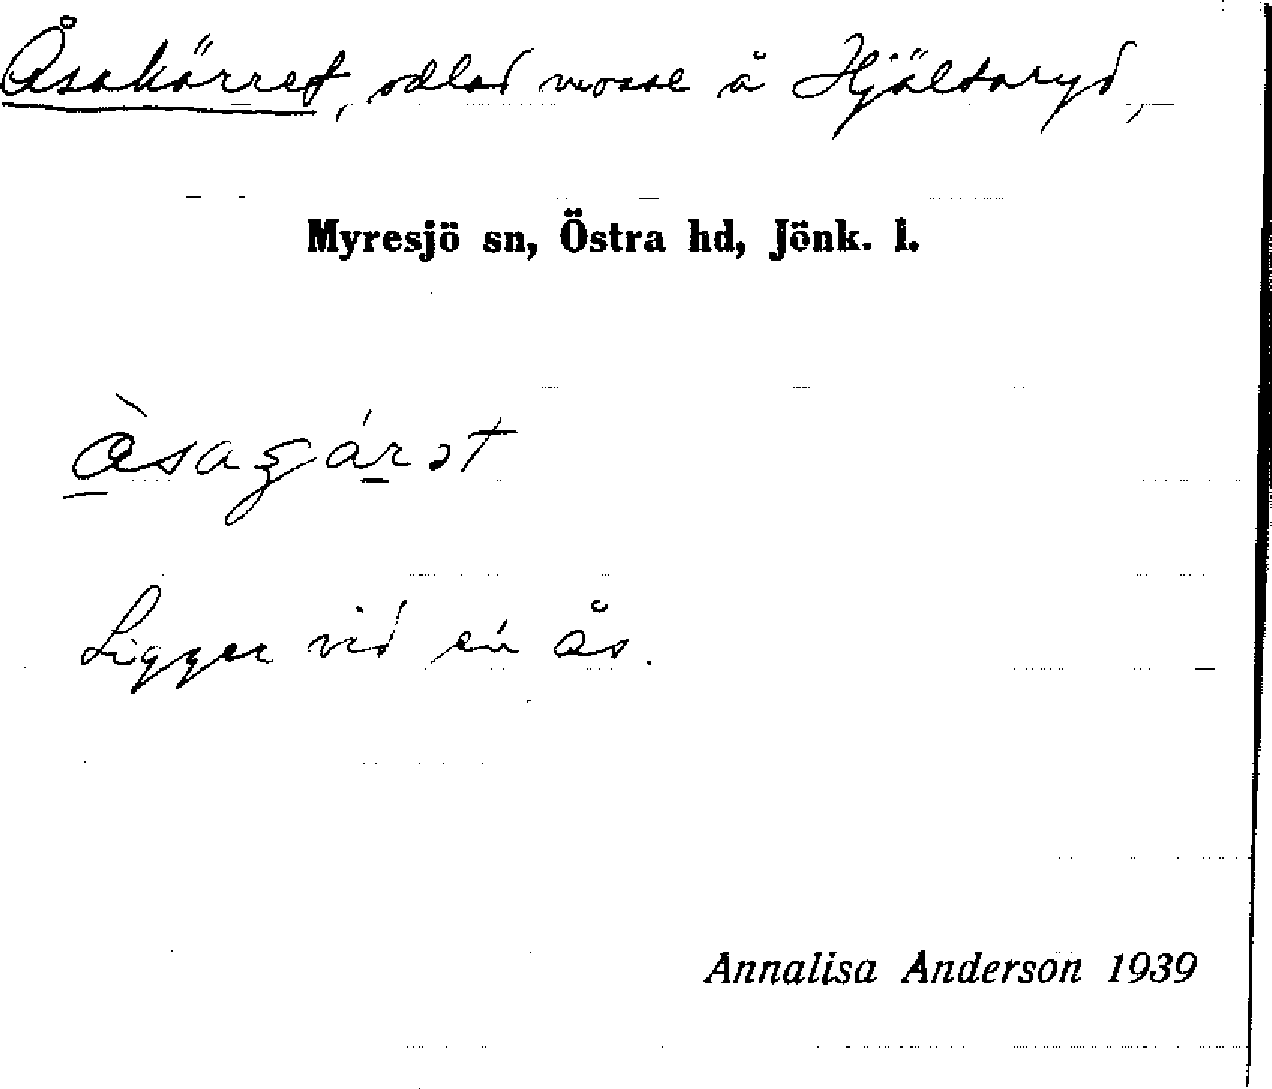 Åsakärret, odlad mosse å Hjältaryd,
Myresjö sn, Östra hd, Jönk. l.
Ligger vid en ås.
Annalisa Anderson 1939